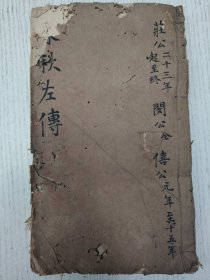 莊公二十三年
起至終
閔公全
僖公元年至十五年
秋左傳